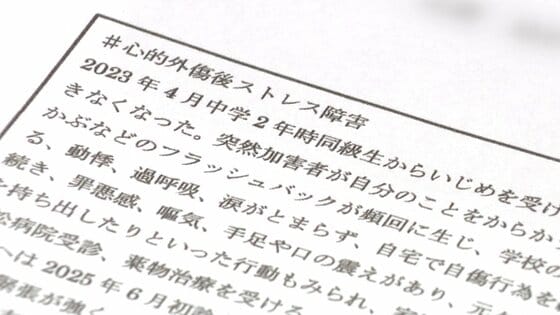 #心的外傷後ストレス障害
2023年4月中学2年時同級生からいじめを受け
きなくなった。突然加害者が自分のことをからか
かぶなどのフラッシュバックが頻回に生じ、学校
る、動悸、過呼吸、涙がとまらず、自宅で自傷行為を
続き、罪悪感、嘔気、手足や口の震えがあり、元
と持ち出したりといった行動もみられ、
病院受診、薬物治療を受ける
へは2025年6月初診
緊張が強く